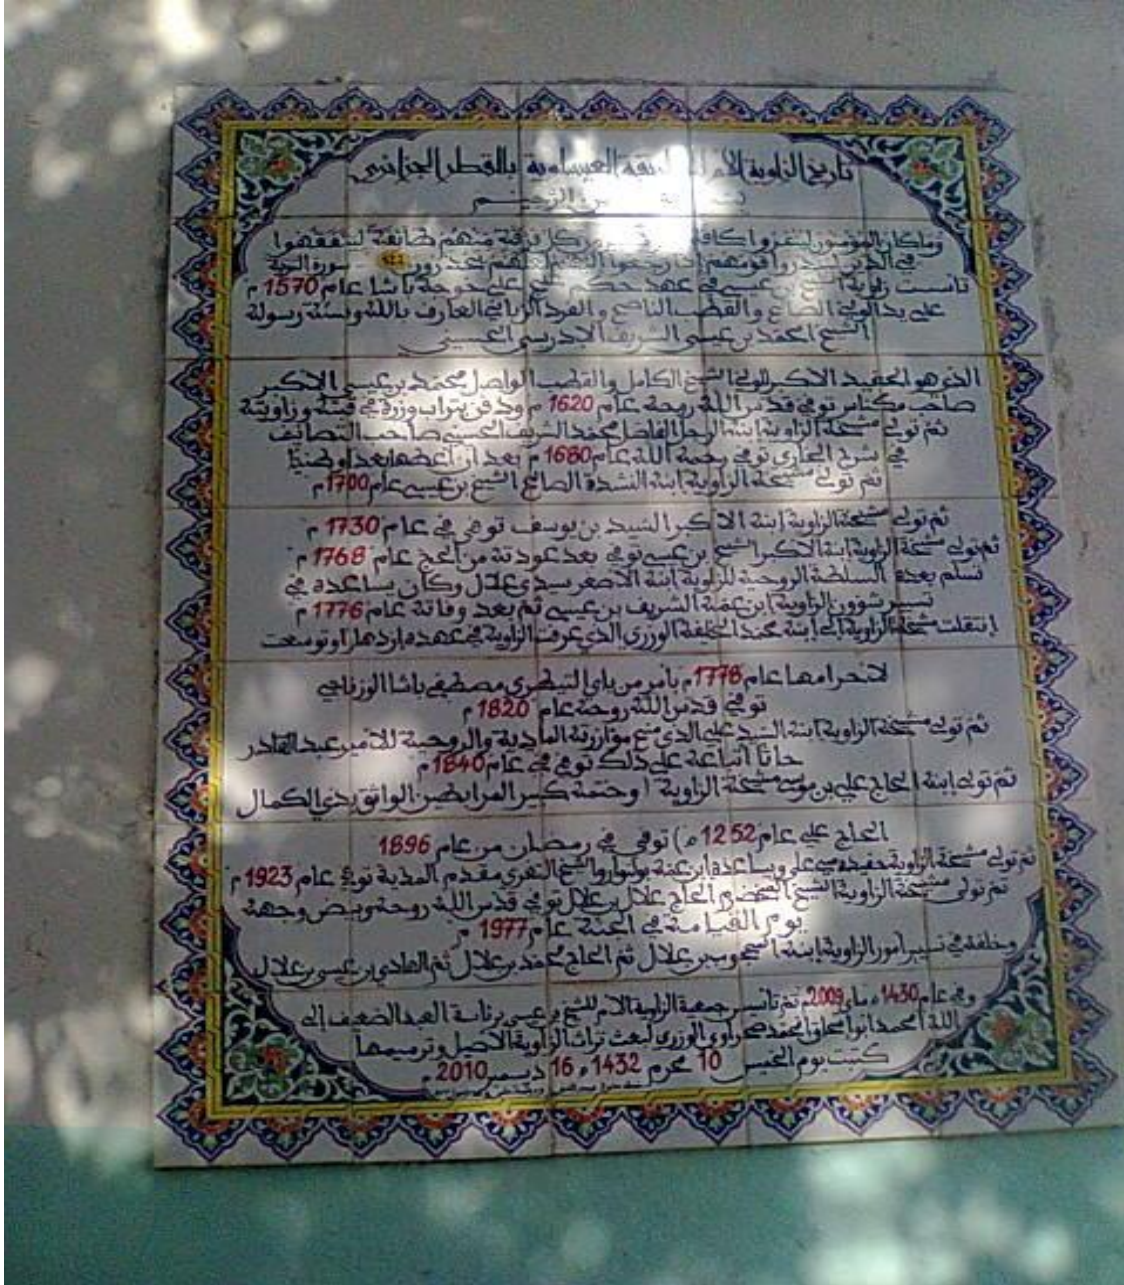 تاريخ الزاوية الأم العيساوية بالقطر الجزائري
الرحيم
وما كان المؤمنون لينفروا كافة كل فرقة منهم طائفة ليتفقهوا
في الدين لينذروا قومهم إذا رجعوا يحذرون سورة التوبة
تأسست زاوية الشيخ بن عيسى في عهد حكم علي خوجة باشا عام 1570 م
على يد الولي الصالح والقطب الناصح والفرد الرباني العارف بالله وسنة رسوله
الشيخ امحمد بن عيسى الشريف الإدريسي الحسني
الذي هو الحفيد الاكبر للولي الشيخ الكامل والقطب الواصل محمد بن عيسى الاكبر
صاحب مكناس توفي قدس الله روحه عام 1620 م ودفن بتراب وزرة في قبته وزاويته
ثم تولى مشيخة الزاوية ابنه الرجل الفاضل محمد الشريف الحسني صاحب التصانيف
في شرح البخاري توفي رحمه الله عام 1680 م بعد ان
ثم تولى مشيخة الزاوية ابنه الصالح الشيخ بن عيسى عام 1700 م
ثم تولى مشيخة الزاوية إبنه الاكبر السيد بن يوسف توفي في عام 1730 م
ثم تولى مشيخة الزاوية ابنه الاكبر الشيخ بن عيسى توفي بعد عودته من الحج عام 1768 م
تسلم بعده السلطة الروحية للزاوية ابنه الأصغر سيدي علال وكان يساعده في
تسيير شؤون الزاوية ابن عمه الشريف بن عيسى ثم بعد وفاته عام 1776 م
إنتقلت مشيخة الزاوية إلى إبنه محمد الخليفة الوزري الذي عرفت الزاوية في عهده إزدهارا وتوسعت
عام 1778 م بأمر من باي التيطري مصطفى باشا الوزناجي
توفي قدس الله روحه عام 1820 م
ثم تولى مشيخة الزاوية ابنه السيد علي الذي مؤازرته المادية والروحية للأمير عبد القادر
حاثا أتباعه على ذلك توفي في عام 1840 م
ثم تولى إبنه الحاج علي بن مشيخة الزاوية ( وختمه كبير المرابطين الواثق بذي الكمال
الحاج علي عام 1252 ه) توفي في رمضان من عام 1896
ثم تولى مشيخة الزاوية حفيده علي ويساعده ابن عمه والشيخ مقدم المدية توفي عام 1923 م
ثم تولى مشيخة الزاوية الشيخ الحاج علال بن علال توفي قدس الله روحه وبيض وجهه
يوم القيامة في الجنة عام 1977 م
وخلفه في تسيير أمور الزاوية إبنه بن علال ثم الحاج محمد بن علال ثم الهادي بن عيسى بن علال
وفي عام 1430 ه ماي 2009 م تم تأسيس جمعية الزاوية الأم للشيخ بن عيسى برئاسة العبد الضعيف إلى
الله امحمد صحراوي الوزري لبعث تراث الزاوية الأصيل وترميمها
كتبت يوم الخميس 10 محرم 1432 ه 16 ديسمبر 2010 م